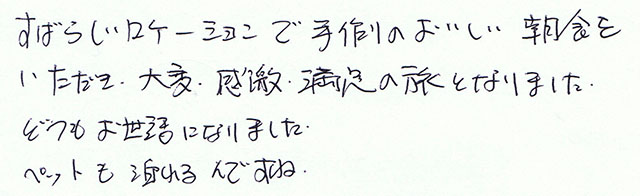 すばらしいロケーションで手作りのおいしい朝食を
いただき、大変、感激、満足の旅となりました。
どうもお世話になりました。
ペットも泊れるんですね。